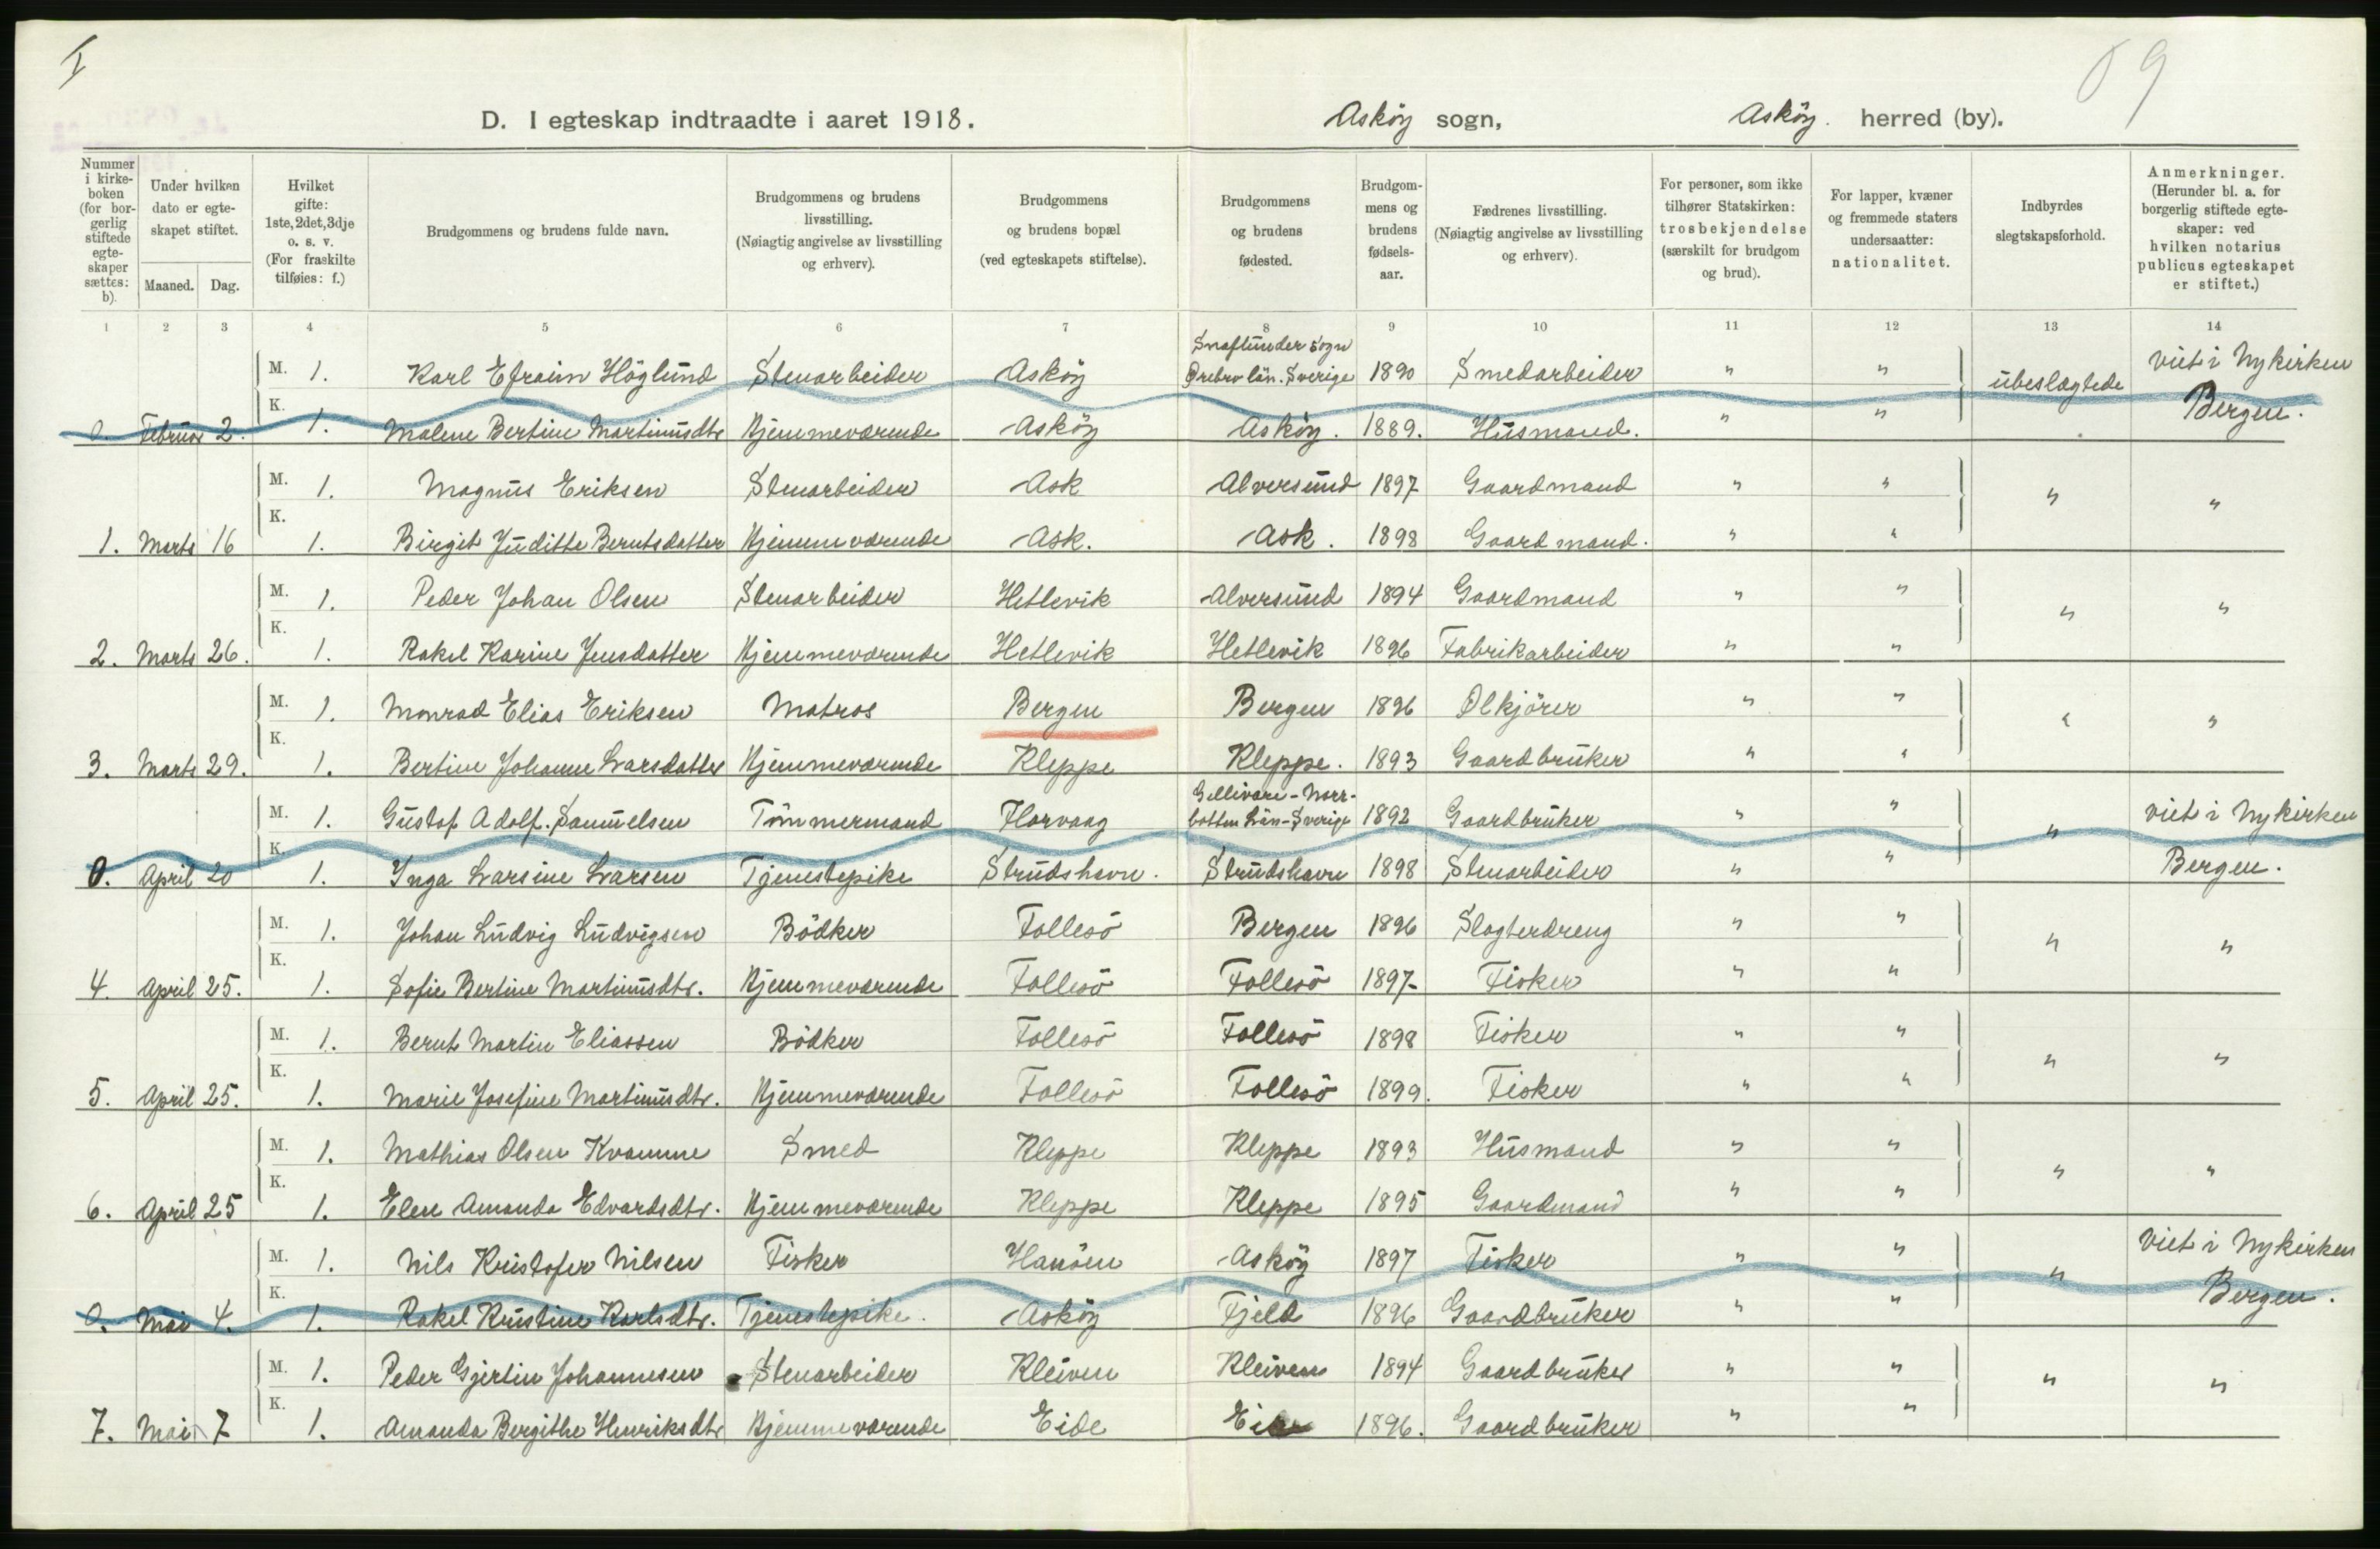 I
69
D. I egteskap indtraadte i aaret 1918. Asköy sogn, Asköy. herred (by).
Nummer i kirke-boken (for bor-gerlig stiftede egte-skaper sættes: b).
Under hvilken dato er egte-skapet stiftet.
Maaned. Dag.
Hvilket gifte: 1ste, 2det, 3dje o. s. v. (For fraskilte tilføies: f.)
Brudgommens og brudens fulde navn.
Brudgommens og brudens livsstilling. (Nøiagtig angivelse av livsstilling og erhverv).
Brudgommens og brudens bopæl (ved egteskapets stiftelse).
Brudgommens og brudens fødested.
Brudgom-mens og brudens fødsels-aar.
Fædrenes livsstilling. (Nøiagtig angivelse av livsstilling og erhverv).
For personer, som ikke tilhører Statskirken: trosbekjendelse (særskilt for brudgom og brud).
For lapper, kvæner og fremmede staters undersaatter: nationalitet.
Indbyrdes slegtskapsforhold.
Anmerkninger. (Herunder bl. a. for borgerlig stiftede egte-skaper: ved hvilken notarius publicus egteskapet er stiftet.)
1 2 3 4 5 6 7 8 9 10 11 12 13 14
Snaflunder sogn
M. 1. Karl Efraim Höglund Stenarbeider Asköy Örebro län. Sverige 1890 Smedarbeider " " ubeslægtede viet i Nykirken
0. Februar 2. K. 1. Malene Bertine Martinusdtr Hjemmeværende Asköy Asköy. 1889. Husmand. " " Bergen.
M. 1. Magnus Eriksen Stenarbeider Ask Alversund 1897 Gaardmand " " " "
1. Marts 16 K. 1. Birgit Juditte Berntsdatter Hjemmeværende Ask. Ask. 1898 Gaardmand. " "
M. 1. Peder Johan Olsen Stenarbeider Hetlevik Alversund 1894 Gaardmand " " " "
2. Marts 26. K. 1. Rakel Karine Jensdatter Hjemmeværende Hetlevik Hetlevik 1896 Fabrikarbeider " "
M. 1. Monrad Elias Eriksen Matros Bergen Bergen 1896 Ölkjörer " " " "
3. Marts 29. K. 1. Bertine Johanne Larsdatter Hjemmeværende Kleppe Kleppe. 1893 Gaardbruker " "
Gellivare-Norr-
M. 1. Gustof Adolf. Samuelsen Tömmermand Florvaag botten Län-Sverige 1892 Gaardbruker " " " viet i Nykirken
0. April 20 K. 1. Inga Larsine Larsen Tjenestepike Strudshavn. Strudshavn 1898 Stenarbeider " " Bergen.
M. 1. Johan Ludvig Ludvigsen Bödker Follesö Bergen 1896 Slagterdreng " " " "
4. April 25. K. 1. Sofie Bertine Martinusdtr. Hjemmeværende Follesö Follesö 1897- Fisker " "
M. 1. Bernt Martin Eliassen Bödker Follesö Follesö 1898 Fisker " " " "
5. April 25. K. 1. Marie Josefine Martinusdtr. Hjemmeværende Follesö Follesö 1899. Fisker " "
M. 1. Mathias Olsen Kvamme Smed Kleppe Kleppe 1893 Husmand " " " "
6. April 25 K. 1. Elen Amanda Edvardsdtr. Hjemmeværende Kleppe Kleppe 1895 Gaardmand " "
M. 1. Nils Kristofer Nilsen Fisker Hanöen Asköy 1897 Fisker " " " Viet i Nykirken
0. Mai 4. K. 1. Rakel Kristine Karlsdtr. Tjenestepike. Asköy Fjeld 1896 Gaardbruker " " Bergen.
M. 1. Peder Gjertin Johannesen Stenarbeider Kleiven Kleiven 1894 Gaardbruker " " " "
7. Mai 7 K. 1. Amanda Bergithe Henriksdtr Hjemmeværende Eide 1896. Gaardbruker " "